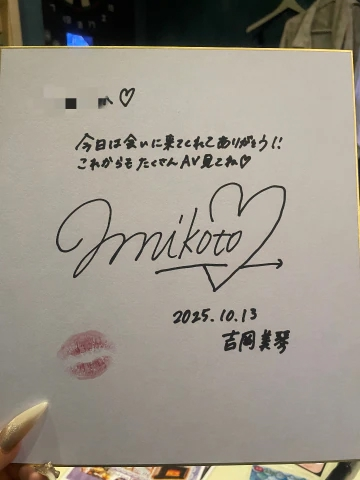 へ♡
今日は会いに来てくれてありがとう!!
これからもたくさんAV見てね♡
mikoto
2025.10.13
吉岡美琴